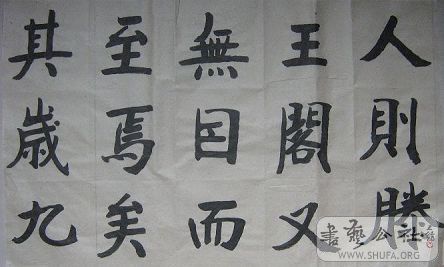 人則勝
王閣又
無因而
至焉矣
其歳九
書藝公社
WWW.SHUFA.ORG